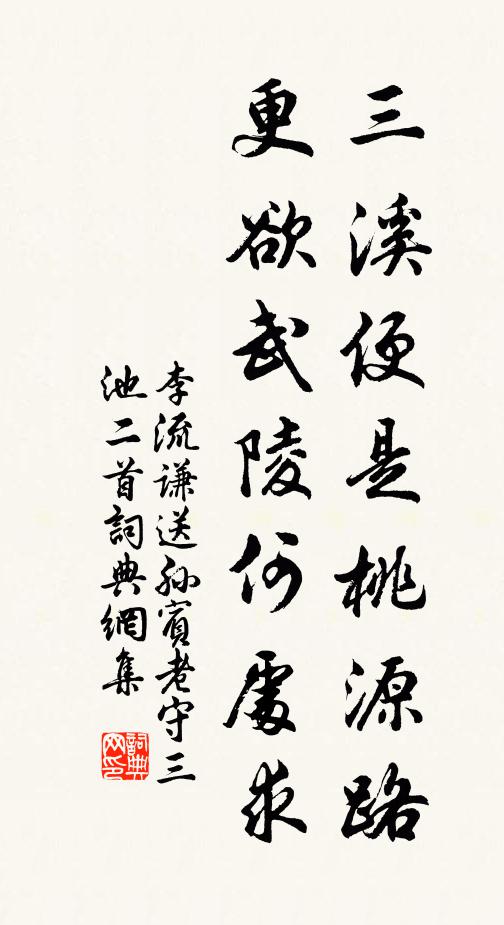 三溪便是桃源路
更欲武陵何處求
李流謙送孫賓老守三
池二首詞典網集
詞典網印